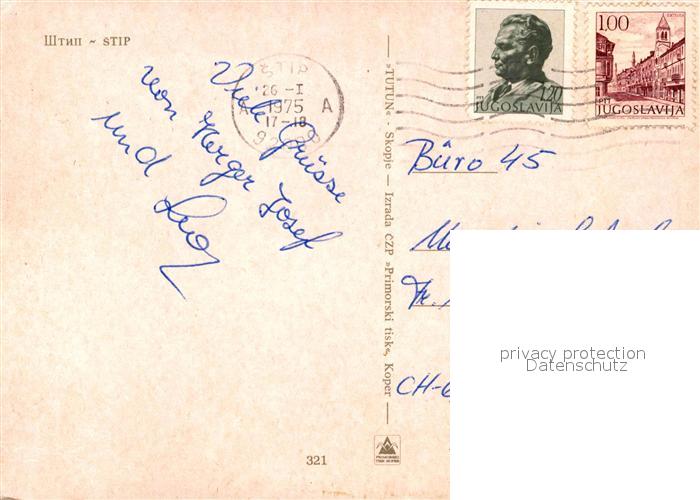 Штип ~ STIP
ŠTIP
26 -I
1975
17-18
A A
92000
1.20
JUGOSLAVIJA
1.00
JUGOSLAVIJA
Viele Grüsse
von Herger Josef
und
»TUTUN« - Skopje — Izrada ČZP »Primorski tisk«, Koper
Büro 45
Fr.
CH-6
privacy protection
Datenschutz
321